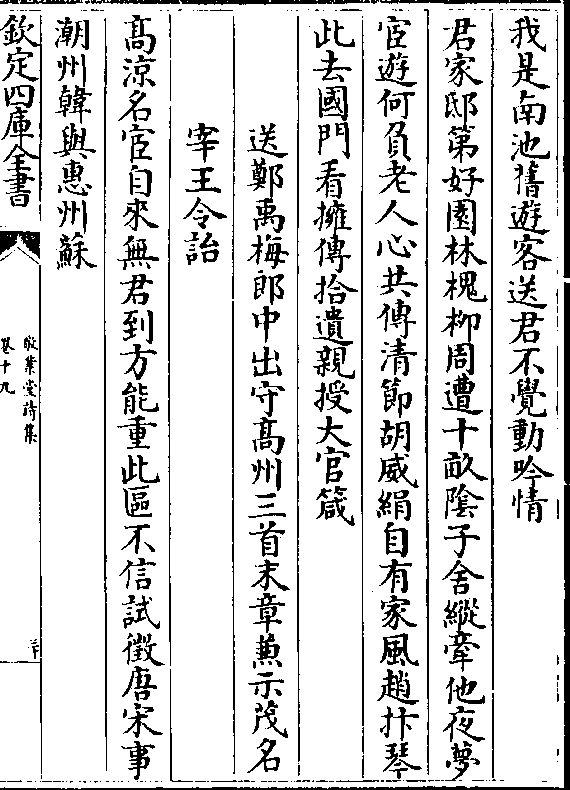 我是南池舊遊客送君不覺動吟情
君家邸第好園林槐柳周遭十畝陰子舍縱牽他夜夢
宦遊何負老人心共傳清節胡威絹自有家風趙抃琴
此去國門看擁傳拾遺親授大官箴
送鄭禹梅郎中出守髙州三首末章兼示茂名
宰王令詒
髙涼名宦自來無君到方能重此區不信試徵唐宋事
潮州韓與惠州蘇
欽定四庫全書
敬業堂詩集
卷十九